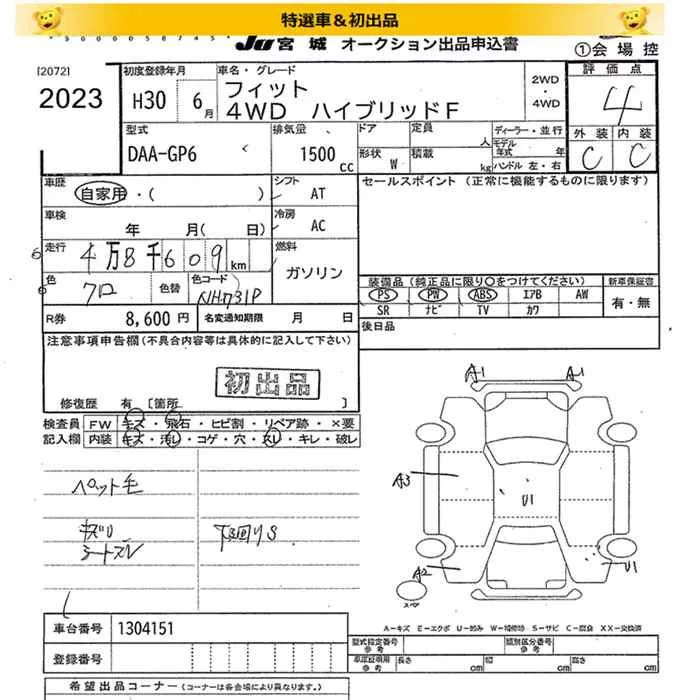 特選車＆初出品
JU 宮 城 オークション出品申込書
①会 場 控
[2072]
2023
初度登録年月
H30 6月
車名・グレード
フィット
4WD ハイブリッドF
2WD
・
4WD
評 価 点
4
外 装 内 装
C C
型式
DAA-GP6
排気量
1500cc
ドア 定員 人
形状 W 積載 kg
ディーラー・並行
モデル年式 年
ハンドル 左・右
車歴
自家用・( )
シフト
AT
セールスポイント (正常に機能するものに限ります)
車検
年 月( 日)
冷房
AC
走行
4万8千609km
燃料
ガソリン
色
色替
色コード
NH731P
装備品 (純正品に限り○をつけてください)
PS PW ABS エアB AW
SR ナビ TV カワ
新車保証書
有・無
R券 8,600円 名変通知期限 月 日
後日品
注意事項申告欄(不具合内容等は具体的に記入して下さい)
初出品
修復歴 有 〔箇所 〕
検査員
記入欄
FW キズ・飛石・ヒビ割・リペア跡・×要
内装 キズ・汚レ・コゲ・穴・スレ・キレ・破レ
ペット毛
下回りS
A1 A1
A3
U1
A2
U1
スペア
A−キズ E−エクボ U−凹み W−補修跡 S−サビ C−腐食 XX−交換済
車台番号 1304151
登録番号
型式指定番号
参考
類別区分番号
参考
車庫証明用
参考
長さ cm 幅 cm 高さ cm
希望出品コーナー (コーナーは各会場により異なります。)